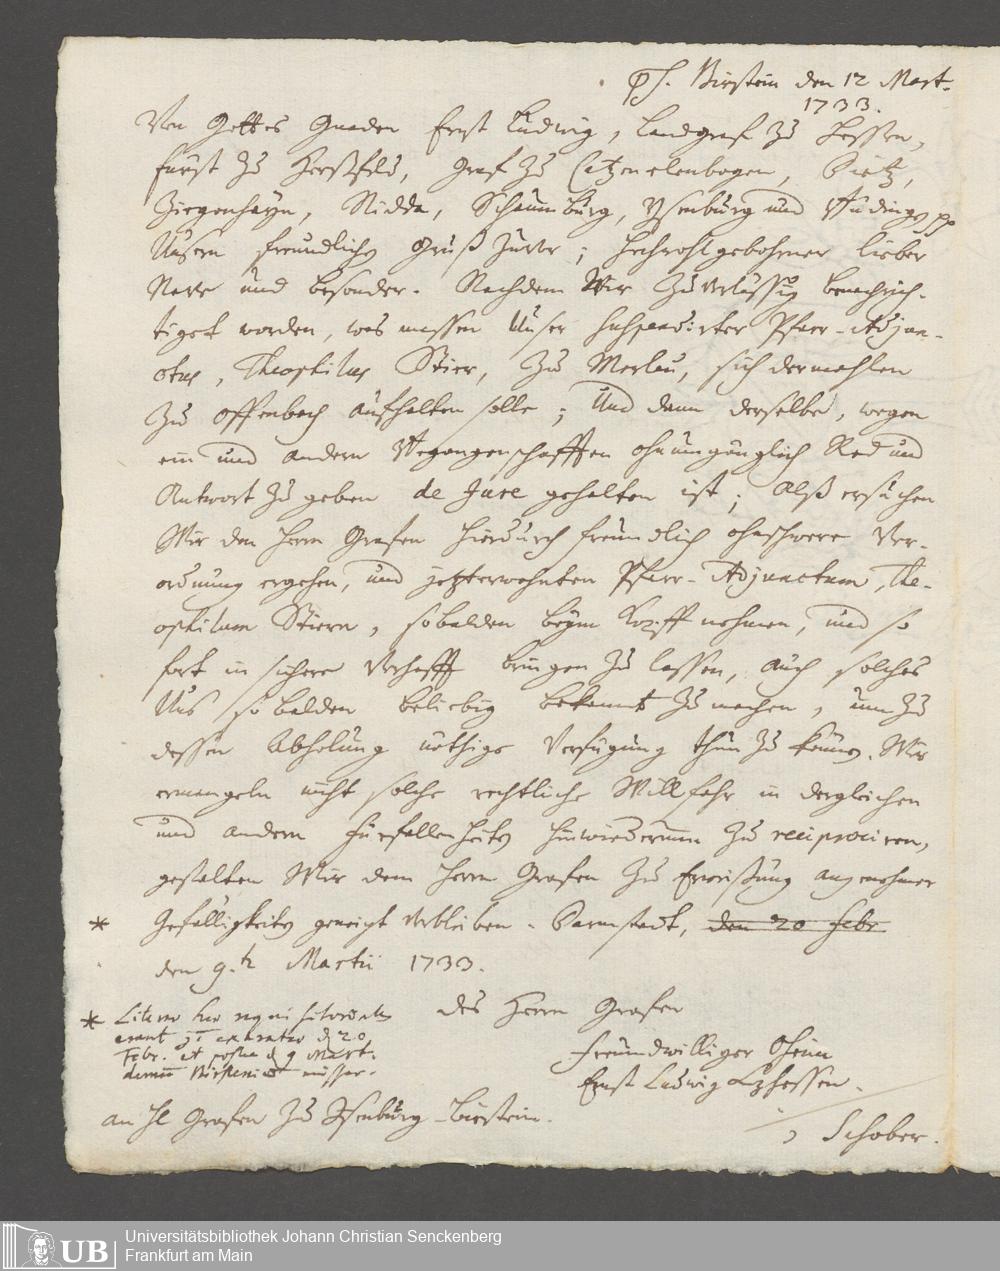 ps. Birstein den 12 Mart.
1733.
Von Gottes Gnaden Ernst Ludwig, Landgraf zu Hessen,
Fürst zu Herßfeld, Graf zu Catzenelenbogen, Dietz,
Ziegenhayn, Nidda, Schaumburg, Ysenburg und Büdingen pp
Unsern freundlichen Gruß zuvor; Hochwohlgebohrner lieber
Neve und besonder. Nachdem Wir zuverlässig benachrich-
tiget worden, was massen Unser suspendirter Pfarr-Adjun-
ctus, Theophilus Stier, zu Merlau, sich dermahlen
zu Offenbach aufhalten solle; Und dann derselbe, wegen
ein und andern Begangenschafften ohnumgänglich Red und
Antwort zu geben de Jure gehalten ist; Alß ersuchen
Wir den Herrn Grafen hierdurch freundlich ohnschwere Ver-
ordnung ergehen, und jetzterwehnten Pfarr-Adjunctum, The-
ophilum Stiern, sobalden beym Kopff nehmen, und so
fort in sichere Verhafft bringen zu lassen, auch solches
Uns so balden beliebig bekannt zu machen, umb zu
dessen Abholung nöthige Verfügung thun zu können. Wir
ermangeln nicht solche rechtliche Willfahr in dergleichen
und andern Fürfallenheiten hinwiederumb zu reciprociren,
gestalten Wir dem Herrn Grafen zu Erweißung angenehmer
* Gefälligkeiten geneigt verbleiben. Darmstadt, den 20 Febr
den 9.t Martii 1733.
des Herrn Grafen
Freundwilliger Oheim
Ernst Ludwig LzHessen.
* Literae hae
erant exaratae d. 20
Febr. et postea d. 9 Mart.
demum missae.
an H. Grafen zu Ysenburg-Birstein.
Schober.
Universitätsbibliothek Johann Christian Senckenberg
UB Frankfurt am Main